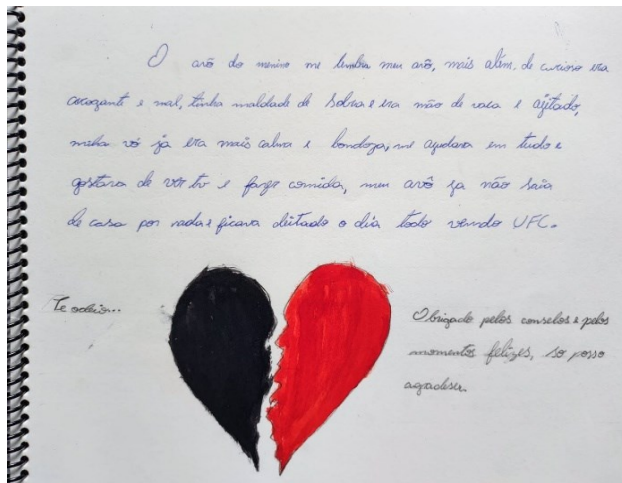 O avô do menino me lembra meu avô, mais além de curioso era
arrogante e mal, tinha maldade de sobra e era mão de vaca e agitado,
minha vó ja era mais calma e bondoza, me ajudava em tudo e
gostava de ver tv e fazer comida, meu avô ja não saia
de casa por nada e ficava deitado o dia todo vendo UFC.
Te odeio...
Obrigado pelos conselos e pelos
momentos felizes, so posso
agradeser.